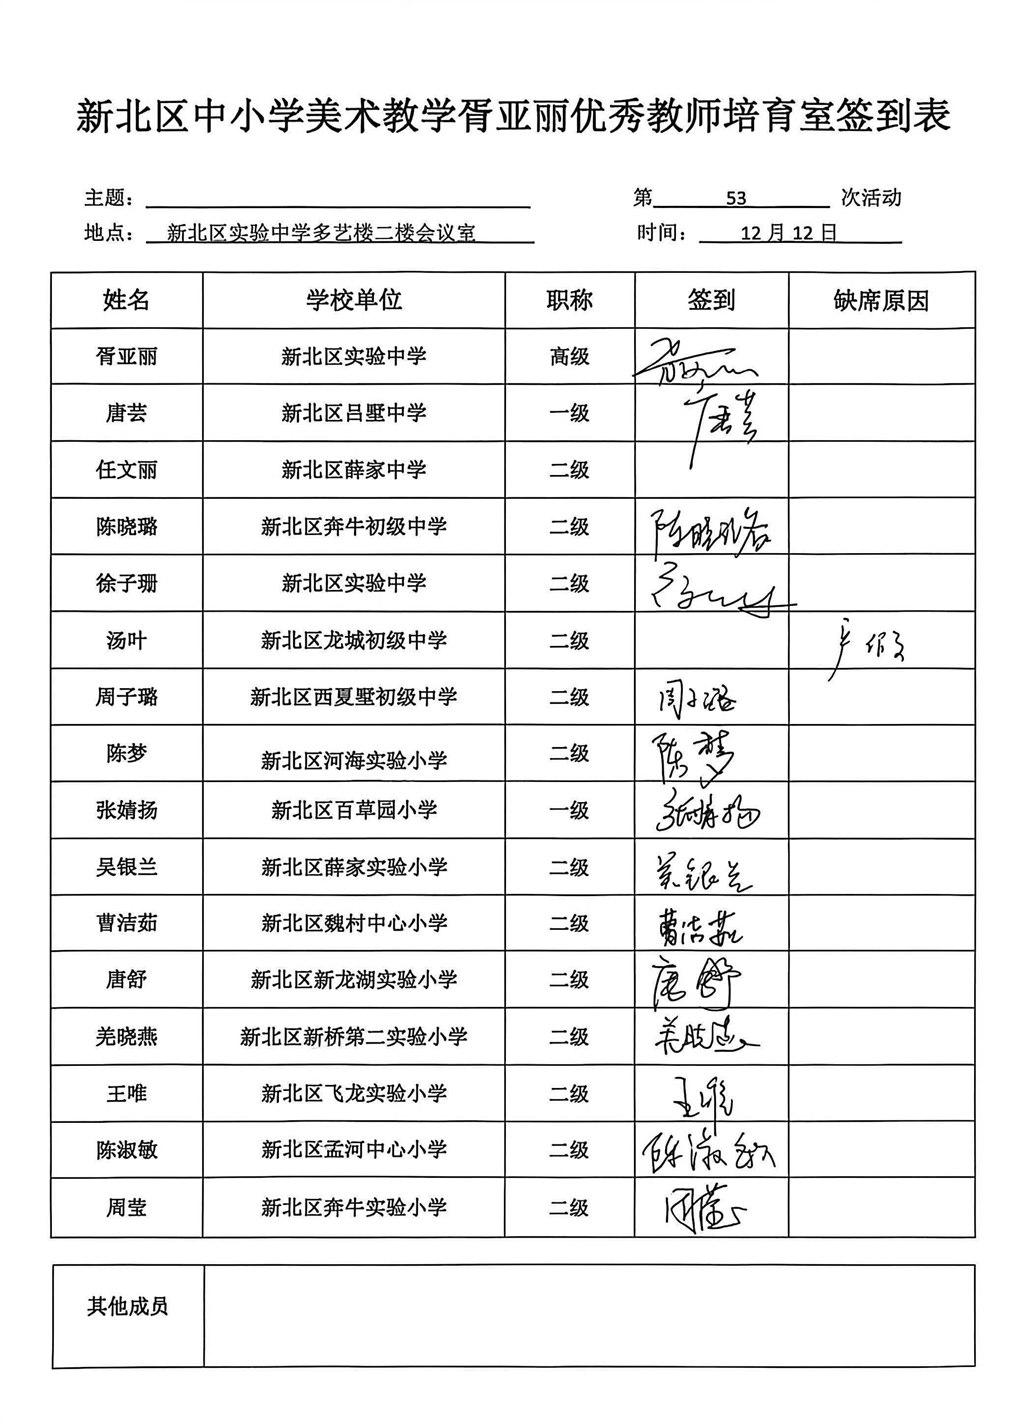 新北区中小学美术教学胥亚丽优秀教师培育室签到表
主题： 第 53 次活动
地点： 新北区实验中学多艺楼二楼会议室 时间： 12月12日
姓名 学校单位 职称 签到 缺席原因
胥亚丽 新北区实验中学 高级 胥亚丽
唐芸 新北区吕墅中学 一级 唐芸
任文丽 新北区薛家中学 二级
陈晓璐 新北区奔牛初级中学 二级 陈晓璐
徐子珊 新北区实验中学 二级 徐子珊
汤叶 新北区龙城初级中学 二级 产假
周子璐 新北区西夏墅初级中学 二级 周子璐
陈梦 新北区河海实验小学 二级 陈梦
张婧扬 新北区百草园小学 一级 张婧扬
吴银兰 新北区薛家实验小学 二级 吴银兰
曹洁茹 新北区魏村中心小学 二级 曹洁茹
唐舒 新北区新龙湖实验小学 二级 唐舒
羌晓燕 新北区新桥第二实验小学 二级 羌晓燕
王唯 新北区飞龙实验小学 二级 王唯
陈淑敏 新北区孟河中心小学 二级 陈淑敏
周莹 新北区奔牛实验小学 二级 周莹
其他成员